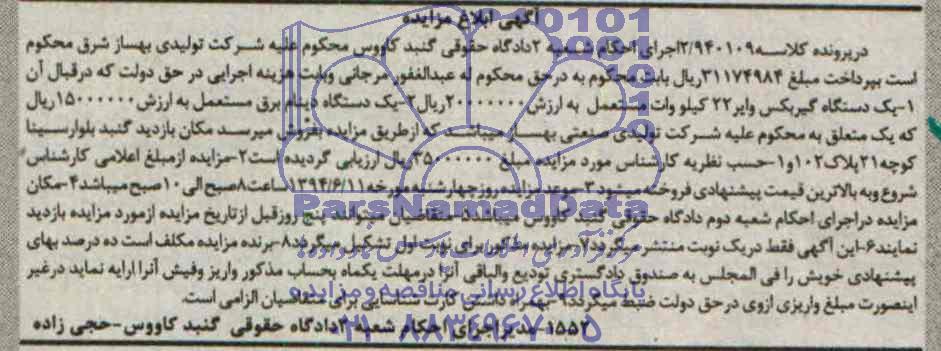 آگهی ابلاغ مزایده
درپرونده کلاسه ۲/۹۴۰۱۰۹اجرای احکام شعبه ۲دادگاه حقوقی گنبد کاووس محکوم علیه شرکت تولیدی بهساز شرق محکوم
است بپرداخت مبلغ ۳۱۱۷۴۹۸۴ریال بابت محکوم به درحق محکوم له عبدالغفور مرجانی وبابت هزینه اجرایی در حق دولت که درقبال آن
۱-یک دستگاه گیربکس وایر۲۲ کیلو وات مستعمل به ارزش ۲۰۰۰۰۰۰۰ریال۲-یک دستگاه دینام برق مستعمل به ارزش ۱۵۰۰۰۰۰۰ریال
که یک متعلق به محکوم علیه شرکت تولیدی صنعتی بهساز میباشد که ازطریق مزایده بفروش میرسد مکان بازدید گنبد بلوارسینا
کوچه۲۱پلاک۱۰۲و۱-حسب نظریه کارشناس مورد مزایده مبلغ ۳۵۰۰۰۰۰۰ریال ارزیابی گردیده است۲-مزایده ازمبلغ اعلامی کارشناس
شروع وبه بالاترین قیمت پیشنهادی فروخته میشود۳-موعد مزایده روزچهارشنبه مورخه ۱۳۹۴/۶/۱۱ساعت۸صبح الی ۱۰صبح میباشد۴-مکان
مزایده دراجرای احکام شعبه دوم دادگاه حقوقی گنبد کاووس میباشد۵-متقاضیان میتوانند پنج روزقبل ازتاریخ مزایده ازمورد مزایده بازدید
نمایند۶-این آگهی فقط دریک نوبت منتشر میگردد۷-مزایده مذکور برای نوبت اول تشکیل میگردد۸-برنده مزایده مکلف است ده درصد بهای
پیشنهادی خویش را فی المجلس به صندوق دادگستری تودیع والباقی آنرا درمهلت یکماه بحساب مذکور واریز وفیش آنرا ارایه نماید درغیر
اینصورت مبلغ واریزی ازوی درحق دولت ضبط میگردد۹-بهمراه داشتن کارت شناسایی برای متقاضیان الزامی است.
۱۵۵۲-مدیراجرای احکام شعبه ۲دادگاه حقوقی گنبد کاووس-حجی زاده
ParsNamadData
پایگاه اطلاع رسانی مناقصه و مزایده
۰۲۱-۸۸۳۴۹۶۷۰-۵